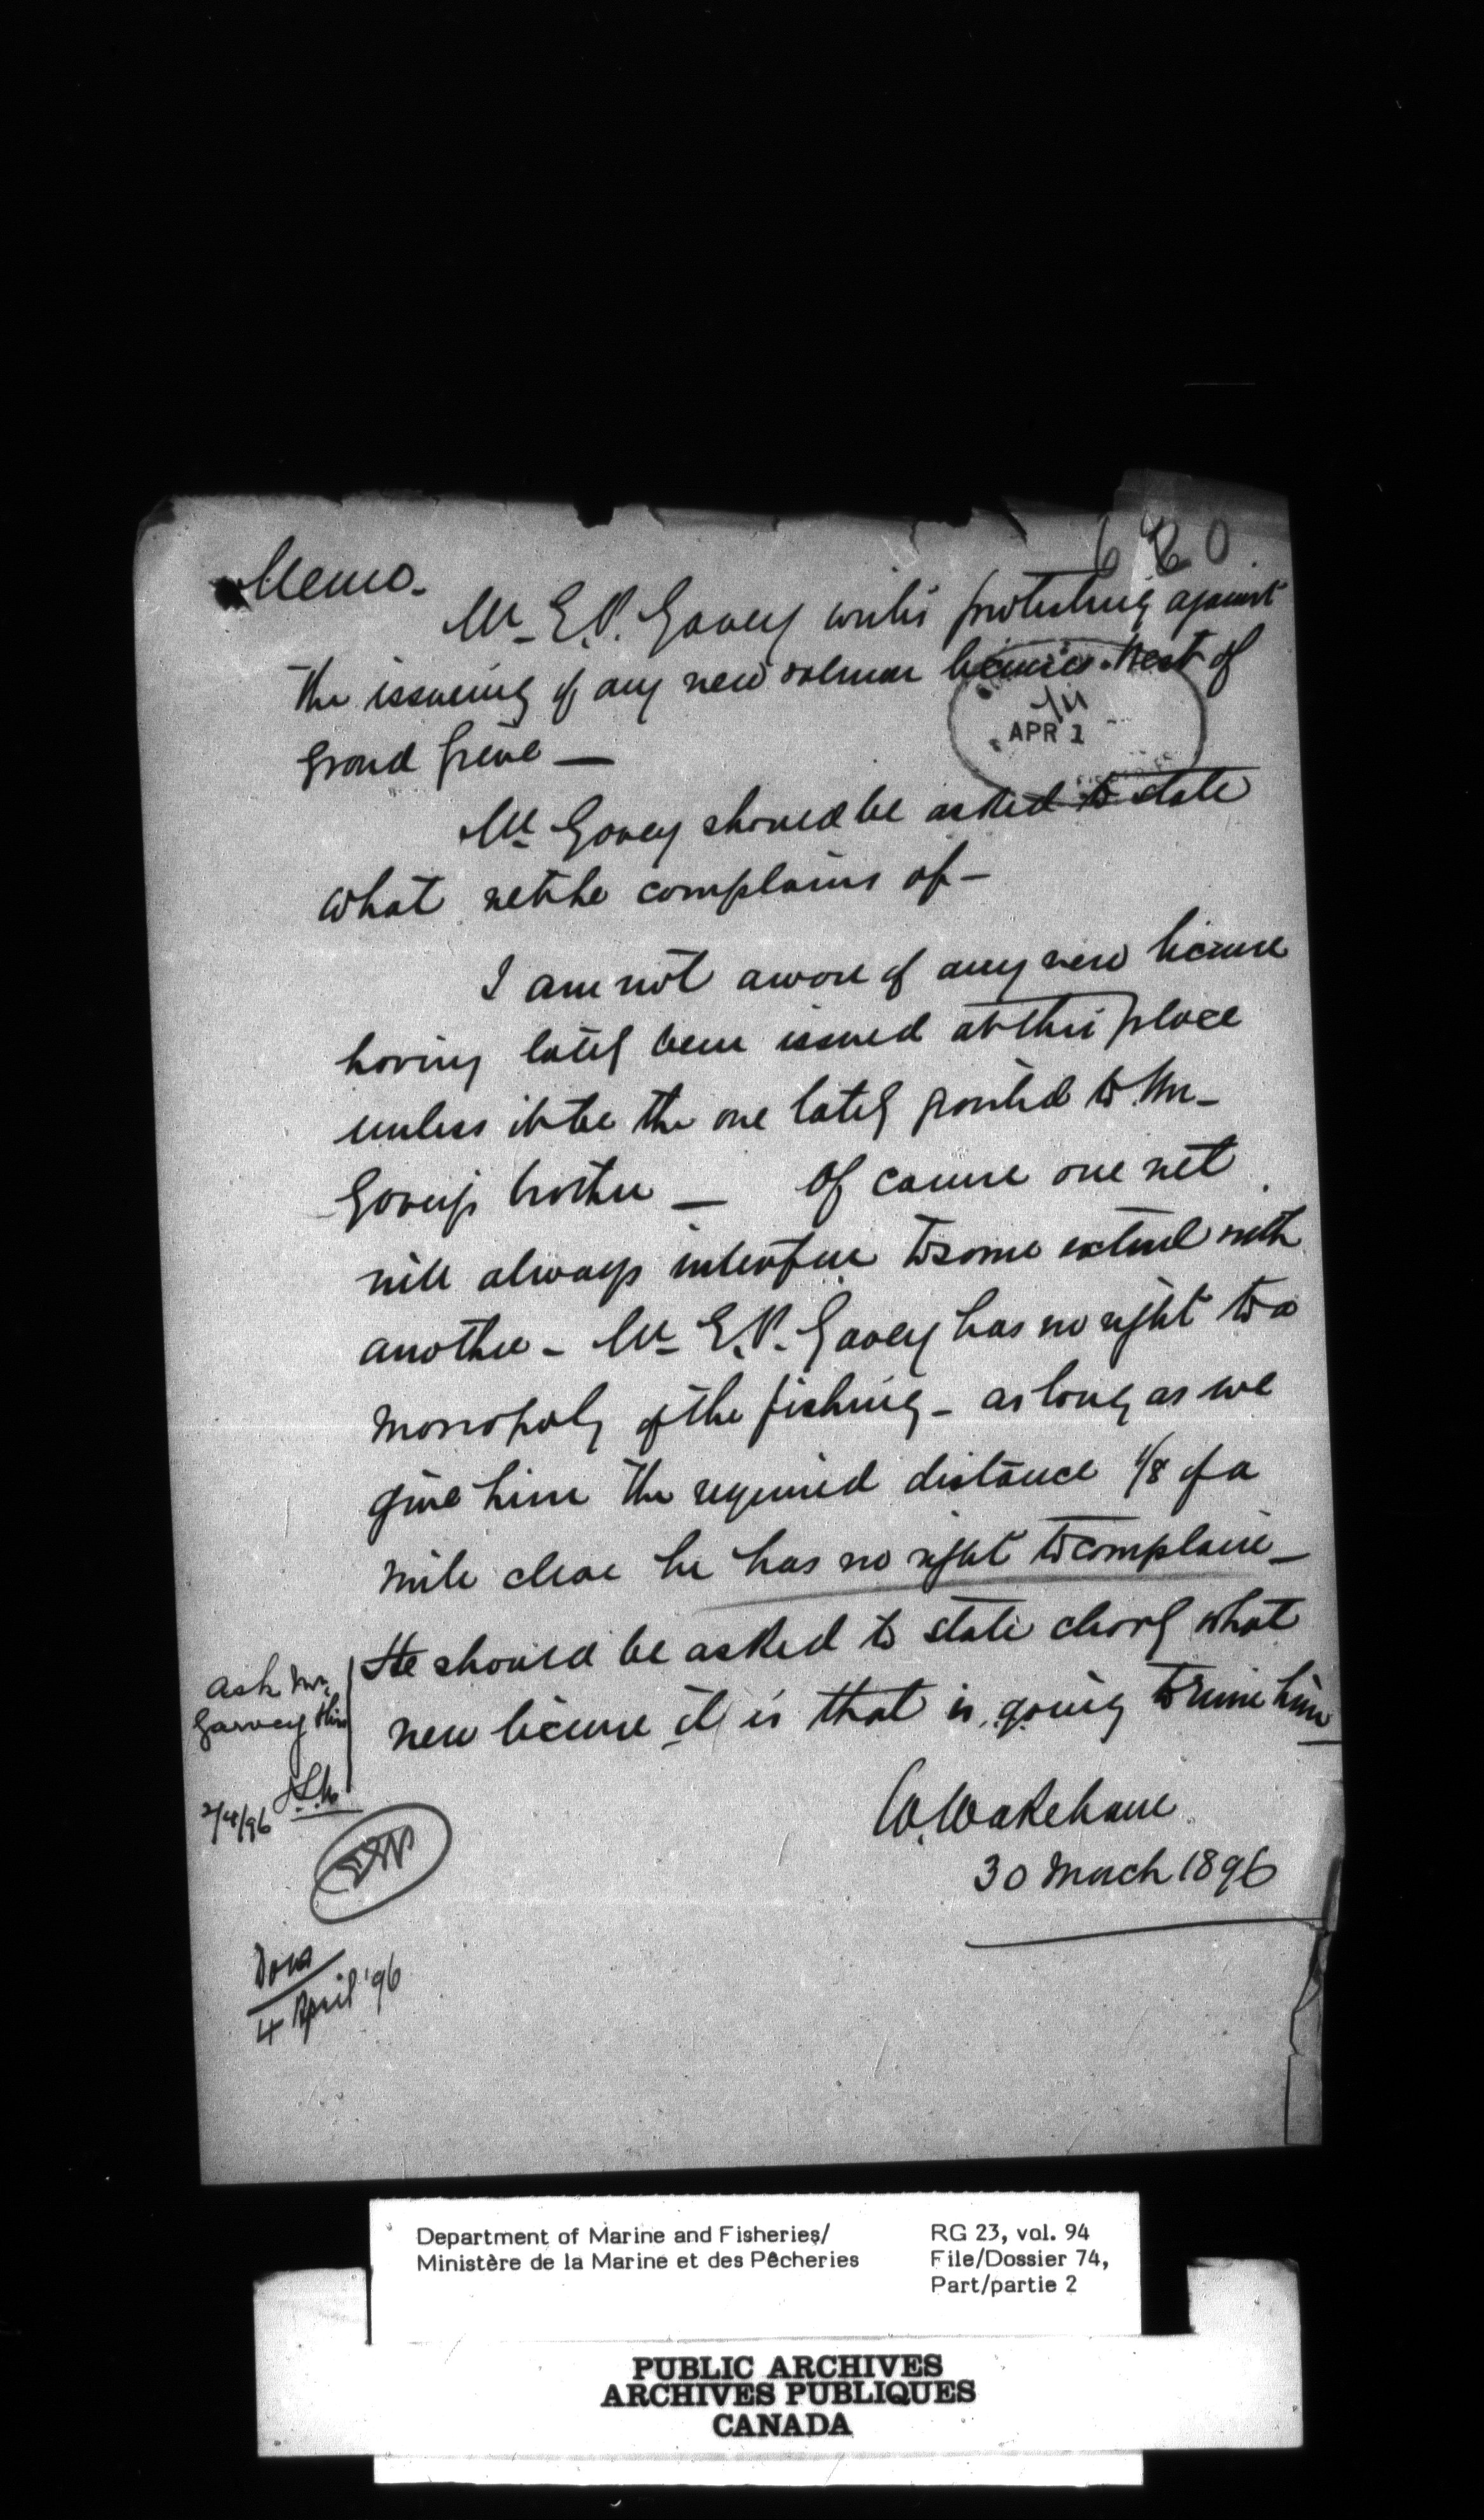 680
Memo.
Mr E.P. Gavey writes protesting against
the issuing of any new salmon licenses West of
Grand Grève —
APR 1
Mr Gavey should be asked to state
what net he complains of —
I am not aware of any new license
having lately been issued at this place
unless it be the one lately granted to Mr
Gavey's brother — Of course one net
will always interfere to some extent with
another — Mr E.P. Gavey has no right to a
monopoly of the fishing — as long as we
give him the required distance 1/8 of a
mile clear he has no right to complain —
He should be asked to state clearly what
new license it is that is going to ruin him
ask Mr.
Garvey this
2/4/96
W. Wakeham
30 March 1896
Done
4 April '96
Department of Marine and Fisheries/
Ministère de la Marine et des Pêcheries
RG 23, vol. 94
File/Dossier 74,
Part/partie 2
PUBLIC ARCHIVES
ARCHIVES PUBLIQUES
CANADA